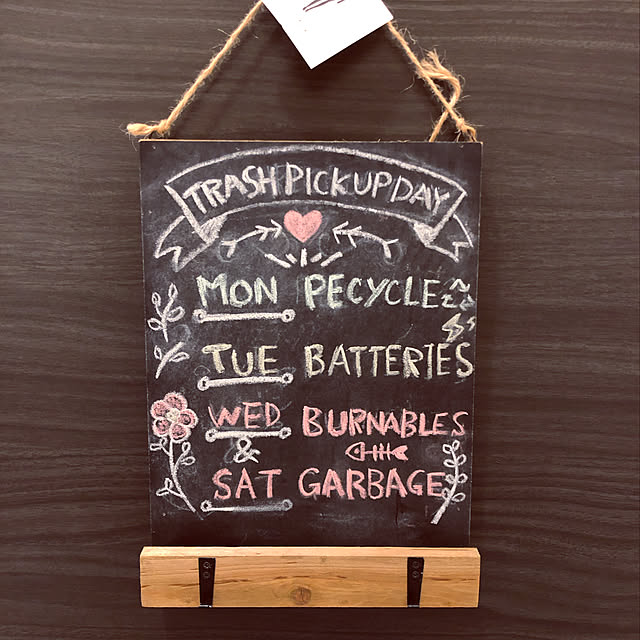 TRASH PICKUP DAY
MON PECYCLE
TUE BATTERIES
WED BURNABLES
&
SAT GARBAGE